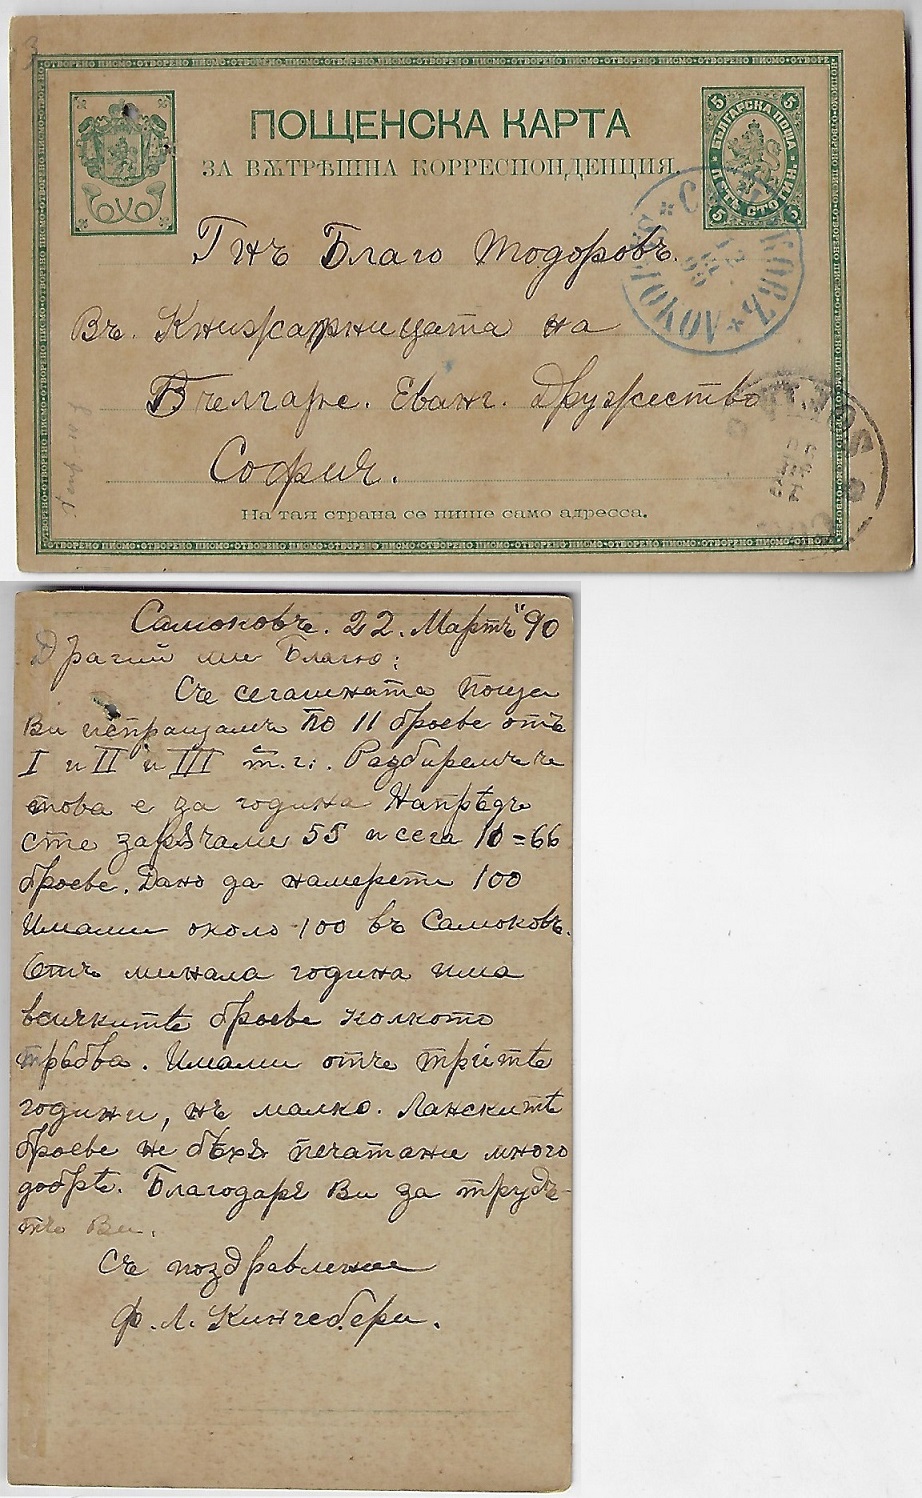 ПОЩЕНСКА КАРТА
ЗА ВѪТРѢШНА КОРРЕСПОНДЕНЦИЯ.
БЪЛГАРСКА ПОЩА
ПЕТЬ СТОТИН.
5 5 5 5
Гнъ Благо Тодоровъ.
Въ Книжарницата на
Бъелгарс. Еванг. Дружество
София.
На тая страна се пише само адресса.
Самоковъ. 22. Мартъ "90
Драгий ми Благо:
Съ сегашната поща
Ви испращамъ по 11 броеве отъ
I и II и III т.г.. Разбирамъ че
това е за година Напрѣдъ
сте зарѫчали 55 и сега 11 = 66
броеве. Дано да намерети 100
Имами около 100 въ Самоковъ.
Отъ минала година има
всичкитѣ броеве колкото
трѣбва. Имами отъ тритѣ
години, нъ малко. Ланскитѣ
броеве не бѣхѫ печатани много
добрѣ. Благодарѭ Ви за трудъ-
тъ Ви.
Съ поздравление
Ф. Л. Кингсбери.